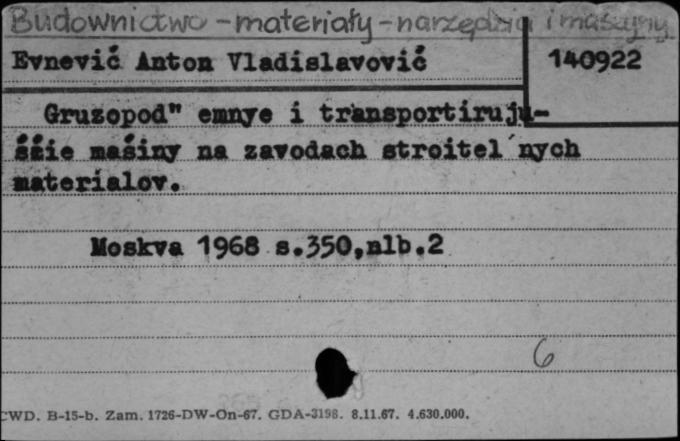 Budownictwo - materiały - narzędzia i maszyny
Evnević Anton Vladislavović 140922
Gruzopod" emnye i transportiruju-
śśie maśiny na zavodach stroitel´nych
materialov.
Moskva 1968 s.350,nlb.2
6
CWD. B-15-b. Zam. 1726-DW-On-67. GDA-3198. 8.11.67. 4.630.000.